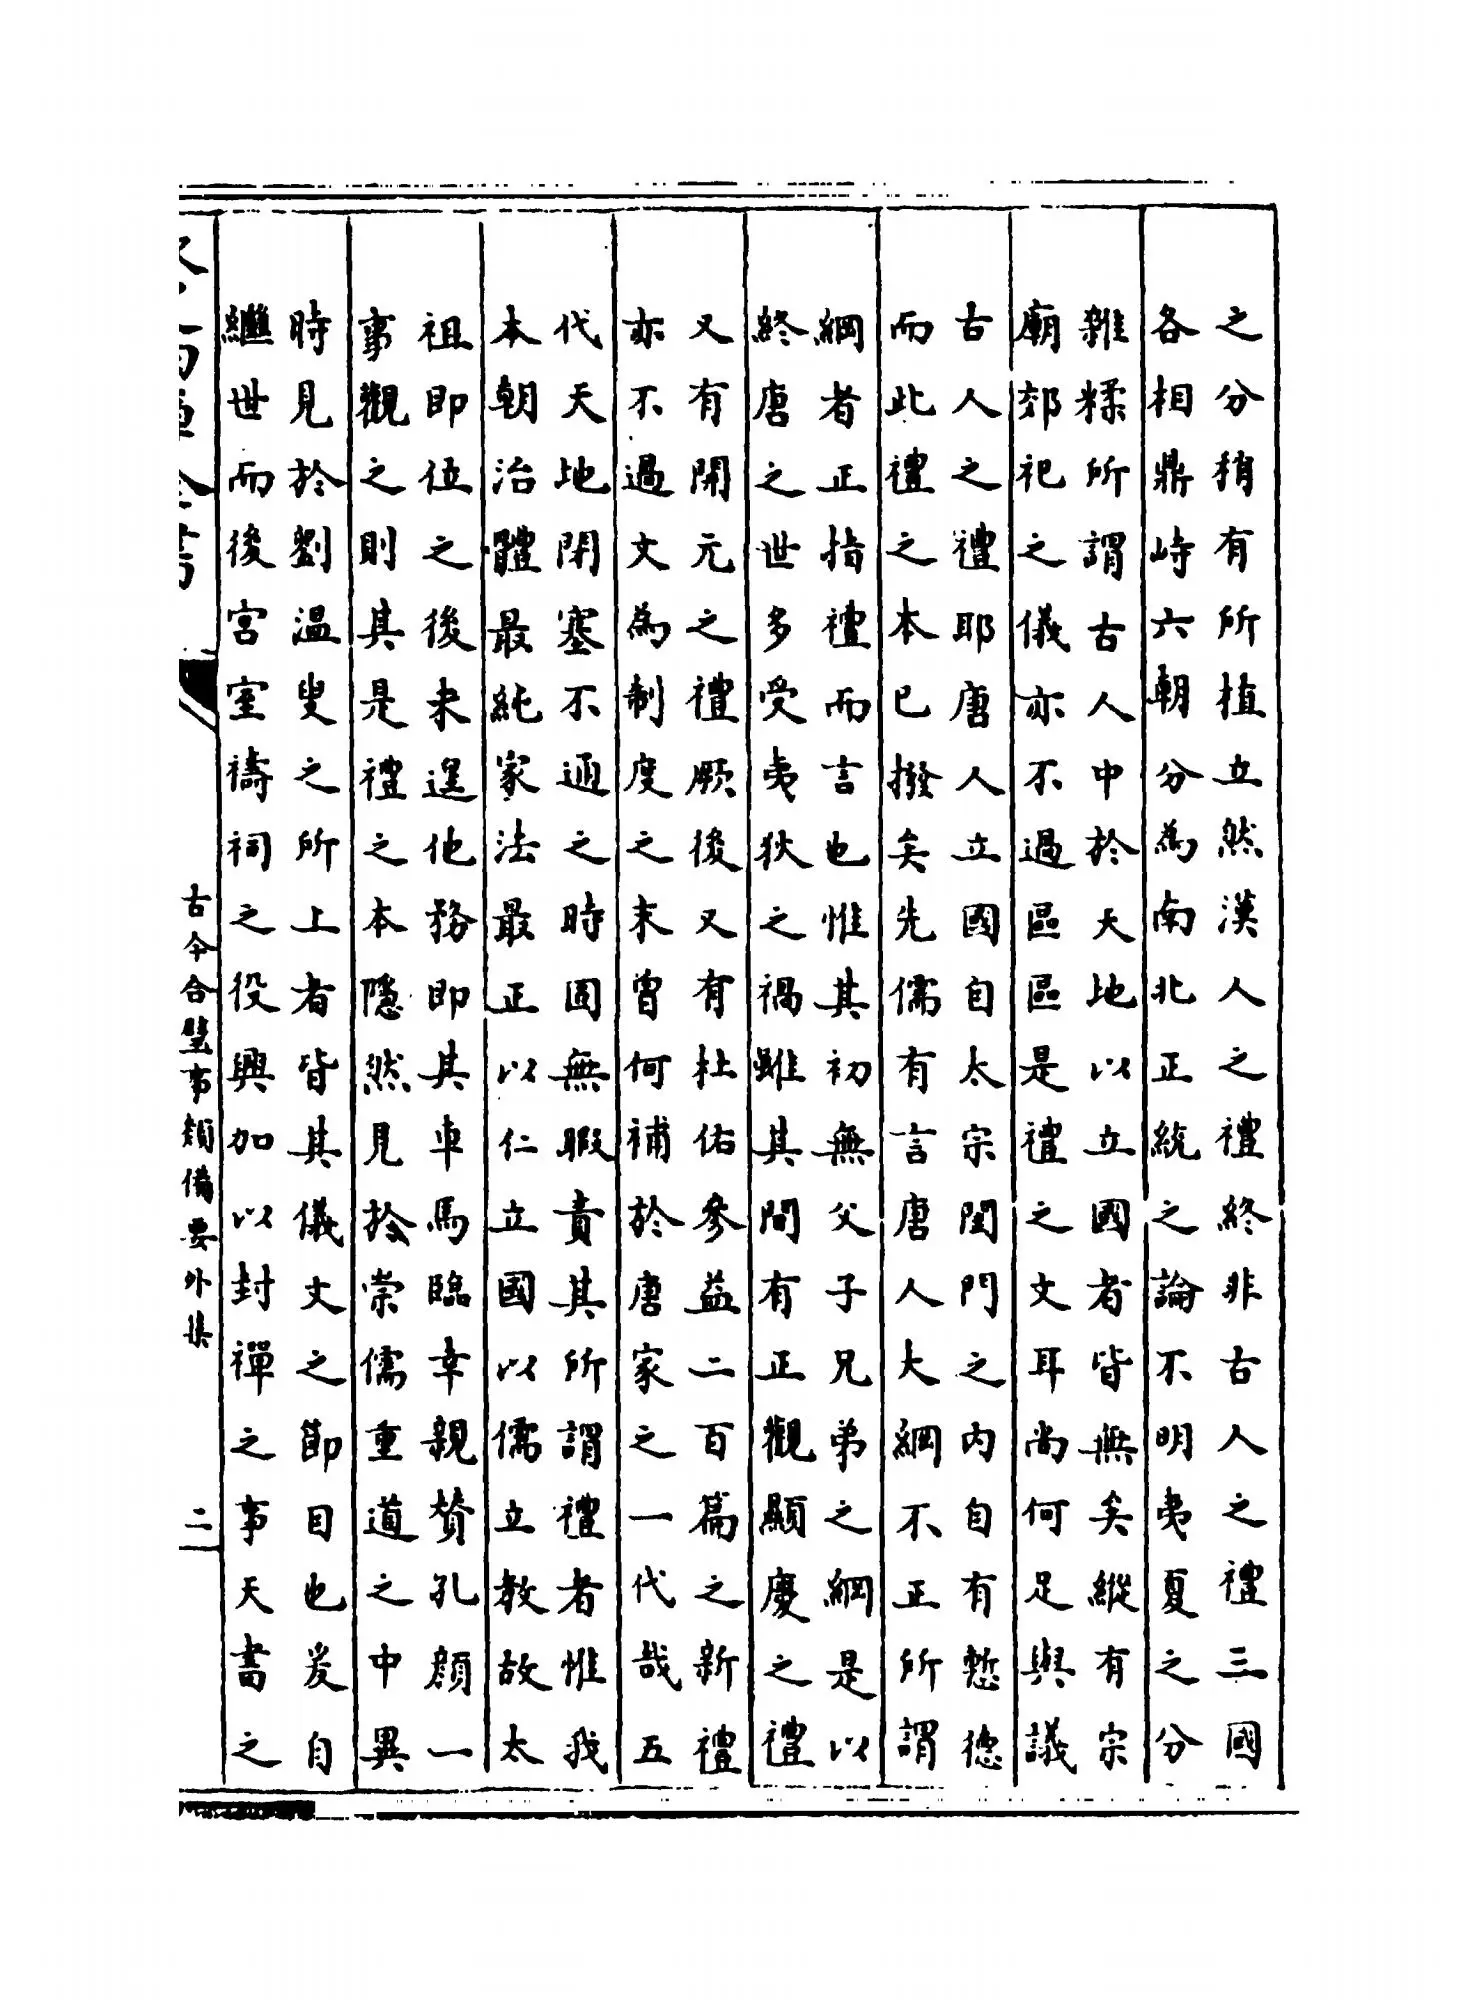 之分稍有所植立然漢人之禮終非古人之禮三國
各相鼎峙六朝分為南北正統之論不明夷夏之分
雜糅所謂古人中於天地以立國者皆無矣縱有宗
廟郊祀之儀亦不過區區是禮之文耳尚何足與議
古人之禮耶唐人立國自太宗閨門之內自有慙德
而此禮之本已撥矣先儒有言唐人大綱不正所謂
綱者正指禮而言也惟其初無父子兄弟之綱是以
終唐之世多受夷狄之禍雖其間有正觀顯慶之禮
又有開元之禮厥後又有杜佑參益二百篇之新禮
亦不過文為制度之末曾何補於唐家之一代哉五
代天地閉塞不通之時固無暇責其所謂禮者惟我
本朝治體最純家法最正以仁立國以儒立教故太
祖即位之後未遑他務即其車馬臨幸親贊孔顔一
事觀之則其是禮之本隱然見於崇儒重道之中異
時見於劉温叟之所上者皆其儀文之節目也爰自
繼世而後宮室禱祠之役興加以封禪之事天書之
古今合璧事類備要外集
二